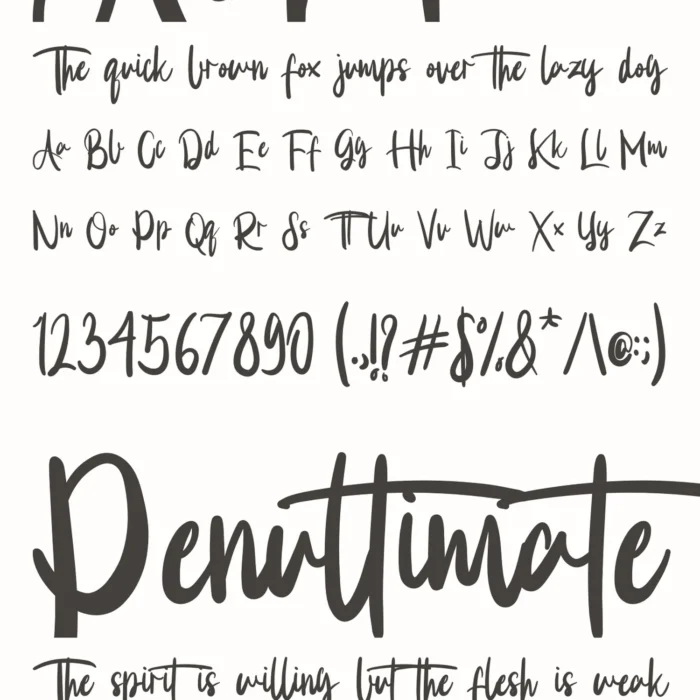 The quick brown fox jumps over the lazy dog
Aa Bb Cc Dd Ee Ff Gg Hh Ii Jj Kk Ll Mm
Nn Oo Pp Qq Rr Ss Tt Uu Vv Ww Xx Yy Zz
1234567890 (.,!?#$%&*/\@:;)
Penultimate
The spirit is willing but the flesh is weak